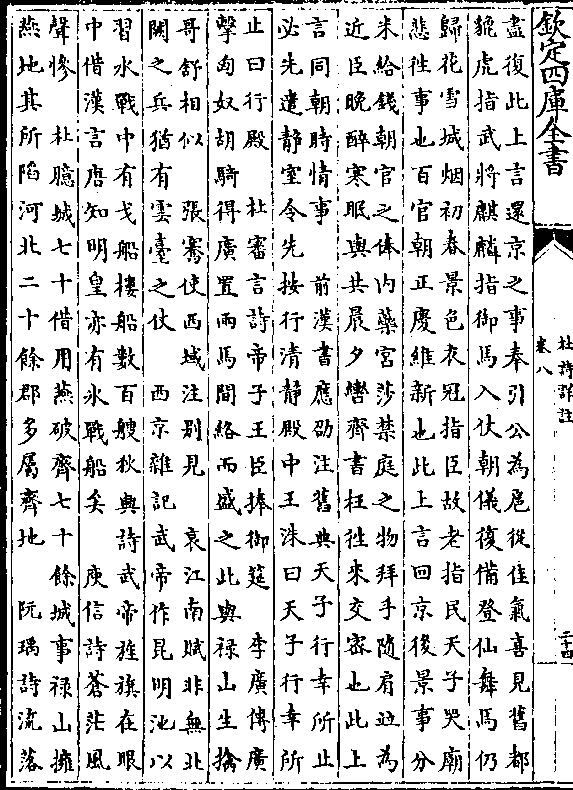 欽定四庫全書
杜詩詳註
卷八
二十四
盡復此上言還京之事奉引公為扈從佳氣喜見舊都
貔虎指武將麒麟指御馬入仗朝儀復備登仙舞馬仍
歸花雪城烟初春景色衣冠指臣故老指民天子哭廟
悲往事也百官朝正慶維新也此上言回京後景事分
米給錢朝官之俸内藥宮莎禁庭之物拜手隨肩迹為
近臣晚醉寒眠與共晨夕轡齊書枉往來交密也此上
言同朝時情事　前漢書應劭注舊典天子行幸所止
必先遣静室令先按行清静殿中王洙曰天子行幸所
止曰行殿　杜審言詩帝子王臣捧御筵　李廣傳廣
擊匈奴胡騎得廣置兩馬間絡而盛之此與禄山生擒
哥舒相似　張騫使西域注别見　哀江南賦非無北
闕之兵猶有雲臺之仗　西京雜記武帝作昆明池以
習水戰中有戈船樓船數百艘秋興詩武帝旌旗在眼
中借漢言唐知明皇亦有水戰船矣　庾信詩蒼茫風
聲惨　杜臆城七十借用燕破齊七十餘城事禄山擁
燕地其所陷河北二十餘郡多屬齊地　阮瑀詩流落